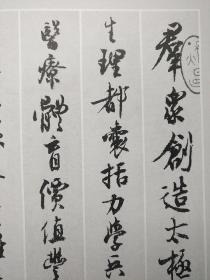 羣衆創造太極
生理都囊括力學兵
醫療體育價值豐